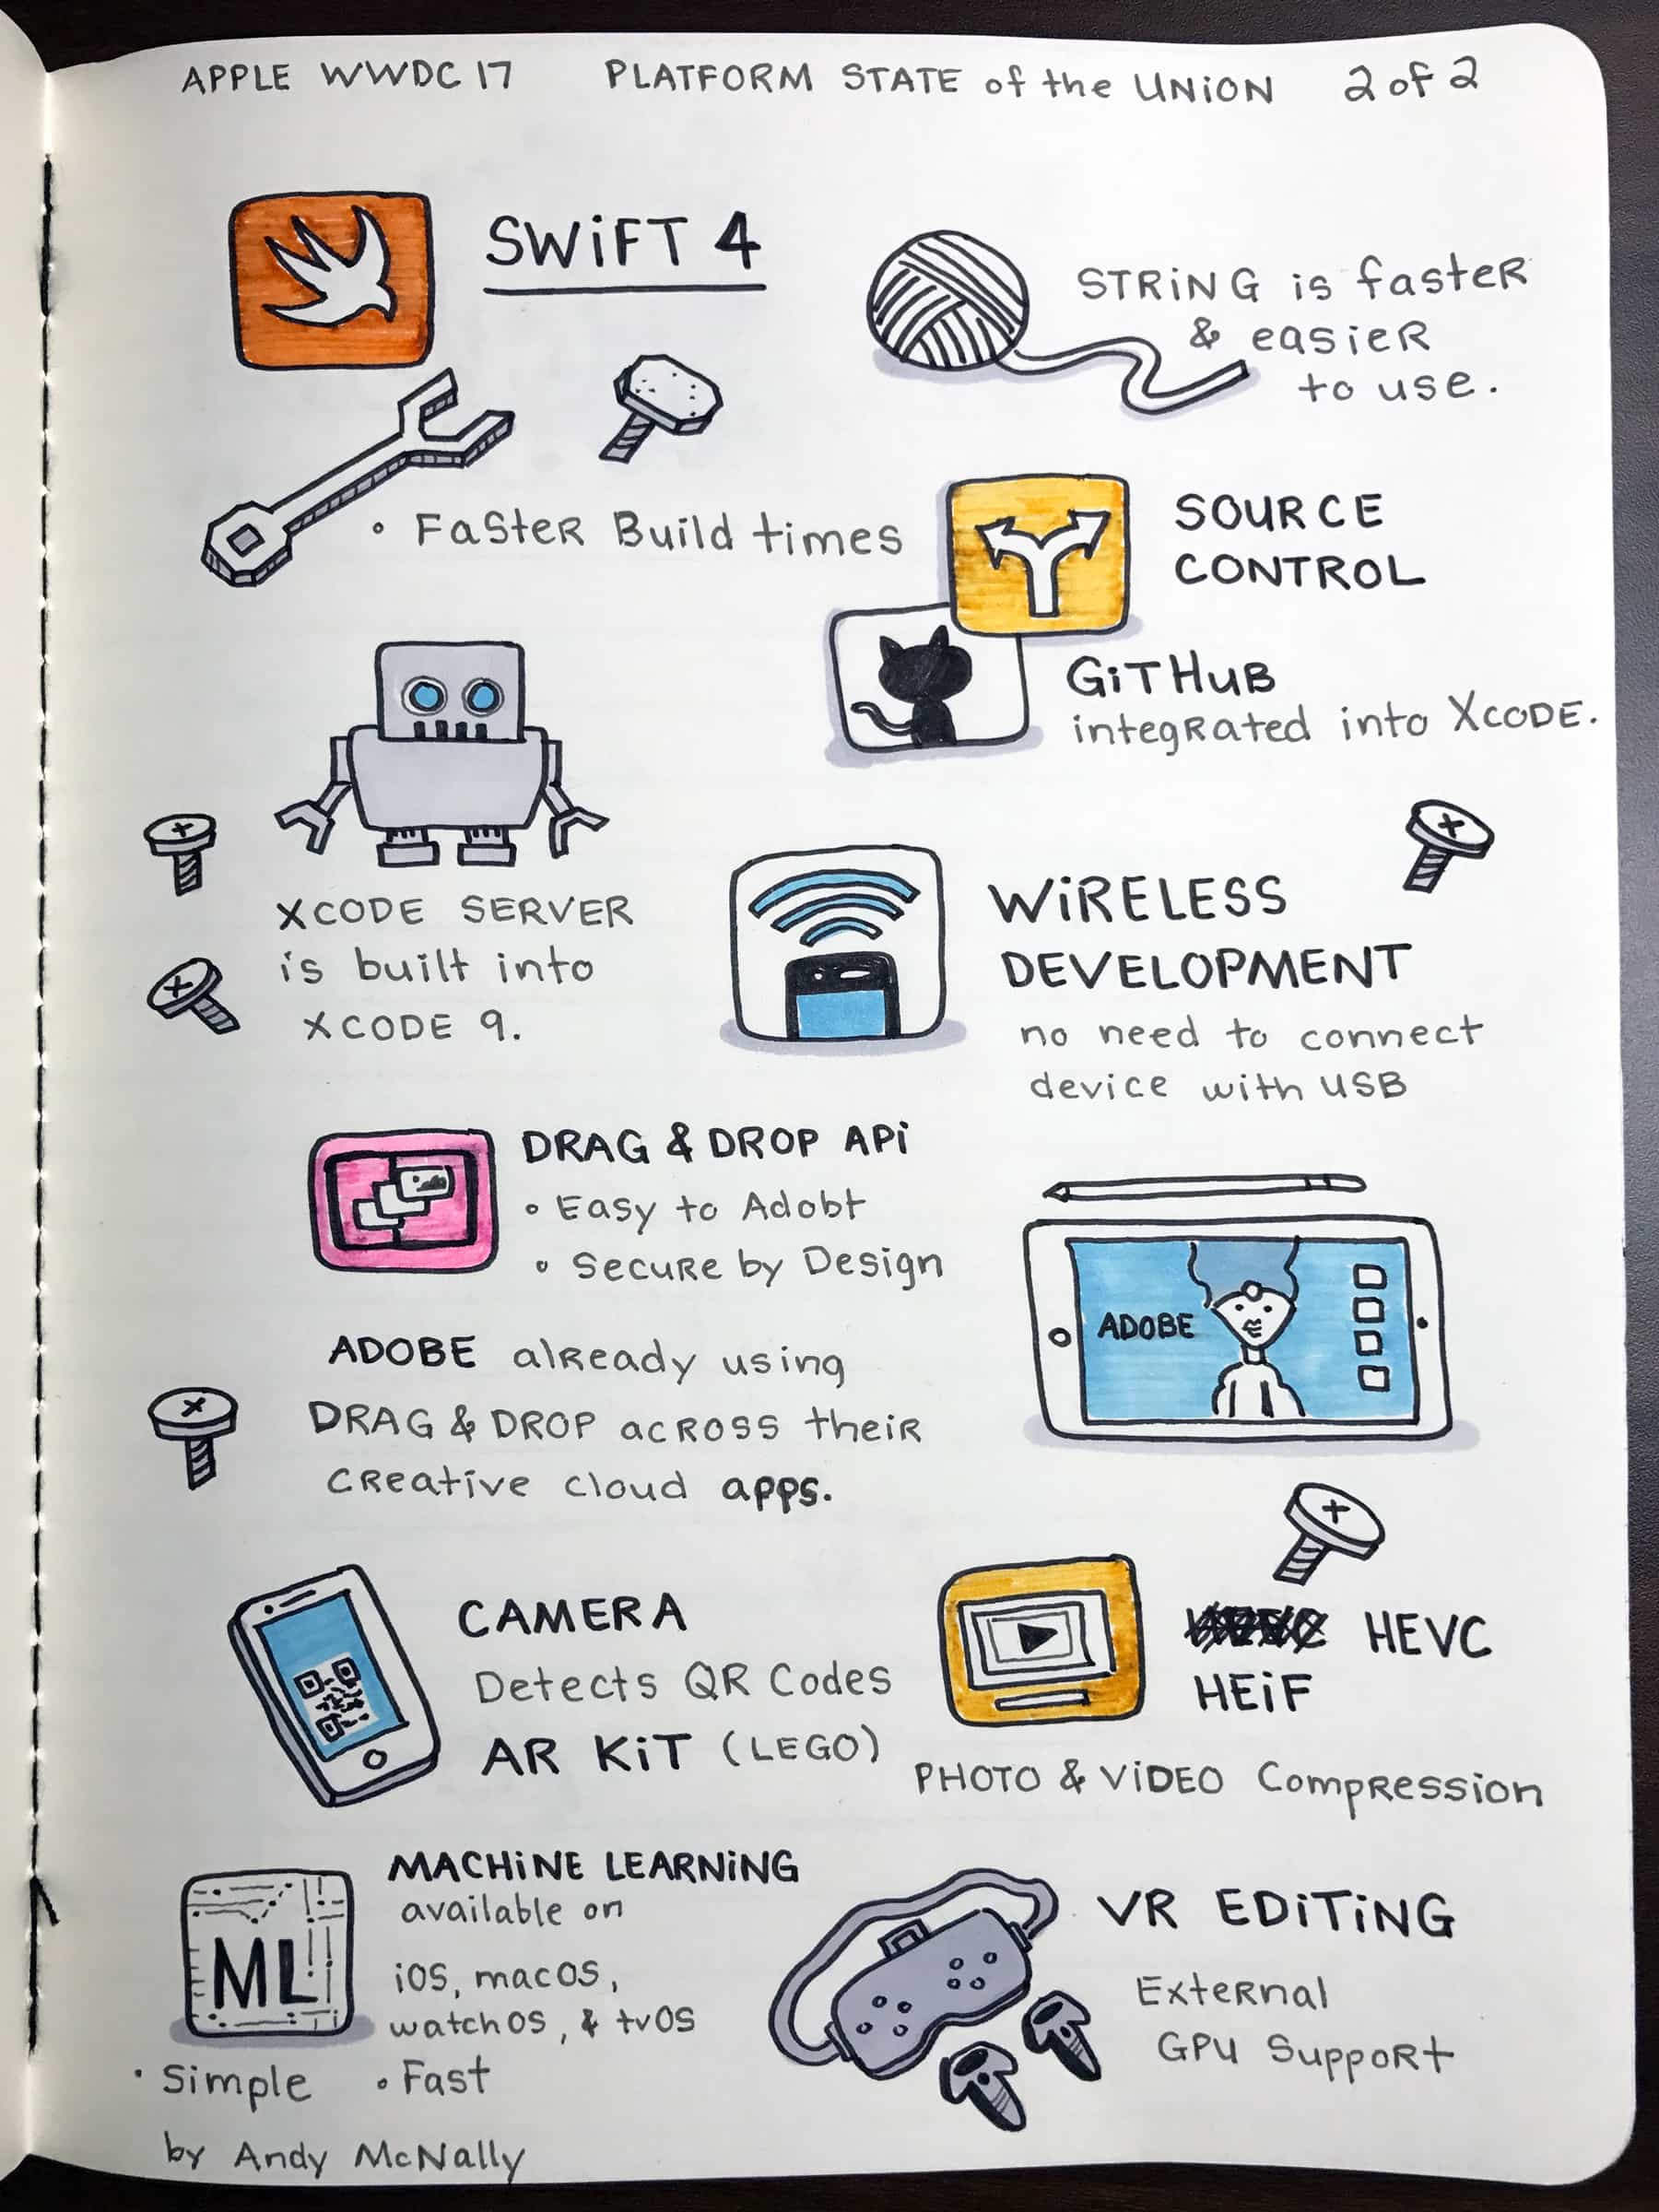 APPLE WWDC 17 PLATFORM STATE of the UNiON 2 of 2
SWiFT 4
STRiNG is faster
& easier
to use.
• Faster Build times
SOURCE
CONTROL
GiTHUB
integrated into XCODE.
XCODE SERVER
is built into
XCODE 9.
WiRELESS
DEVELOPMENT
no need to connect
device with USB
DRAG & DROP APi
• Easy to Adobt
• Secure by Design
ADOBE
ADOBE already using
DRAG & DROP across their
creative cloud apps.
CAMERA
Detects QR Codes
AR KiT (LEGO)
HEVC
HEiF
PHOTO & ViDEO Compression
ML
MACHiNE LEARNiNG
available on
iOS, macOS,
watchOS, & tvOS
• Simple • Fast
VR EDiTiNG
External
GPU Support
by Andy McNally